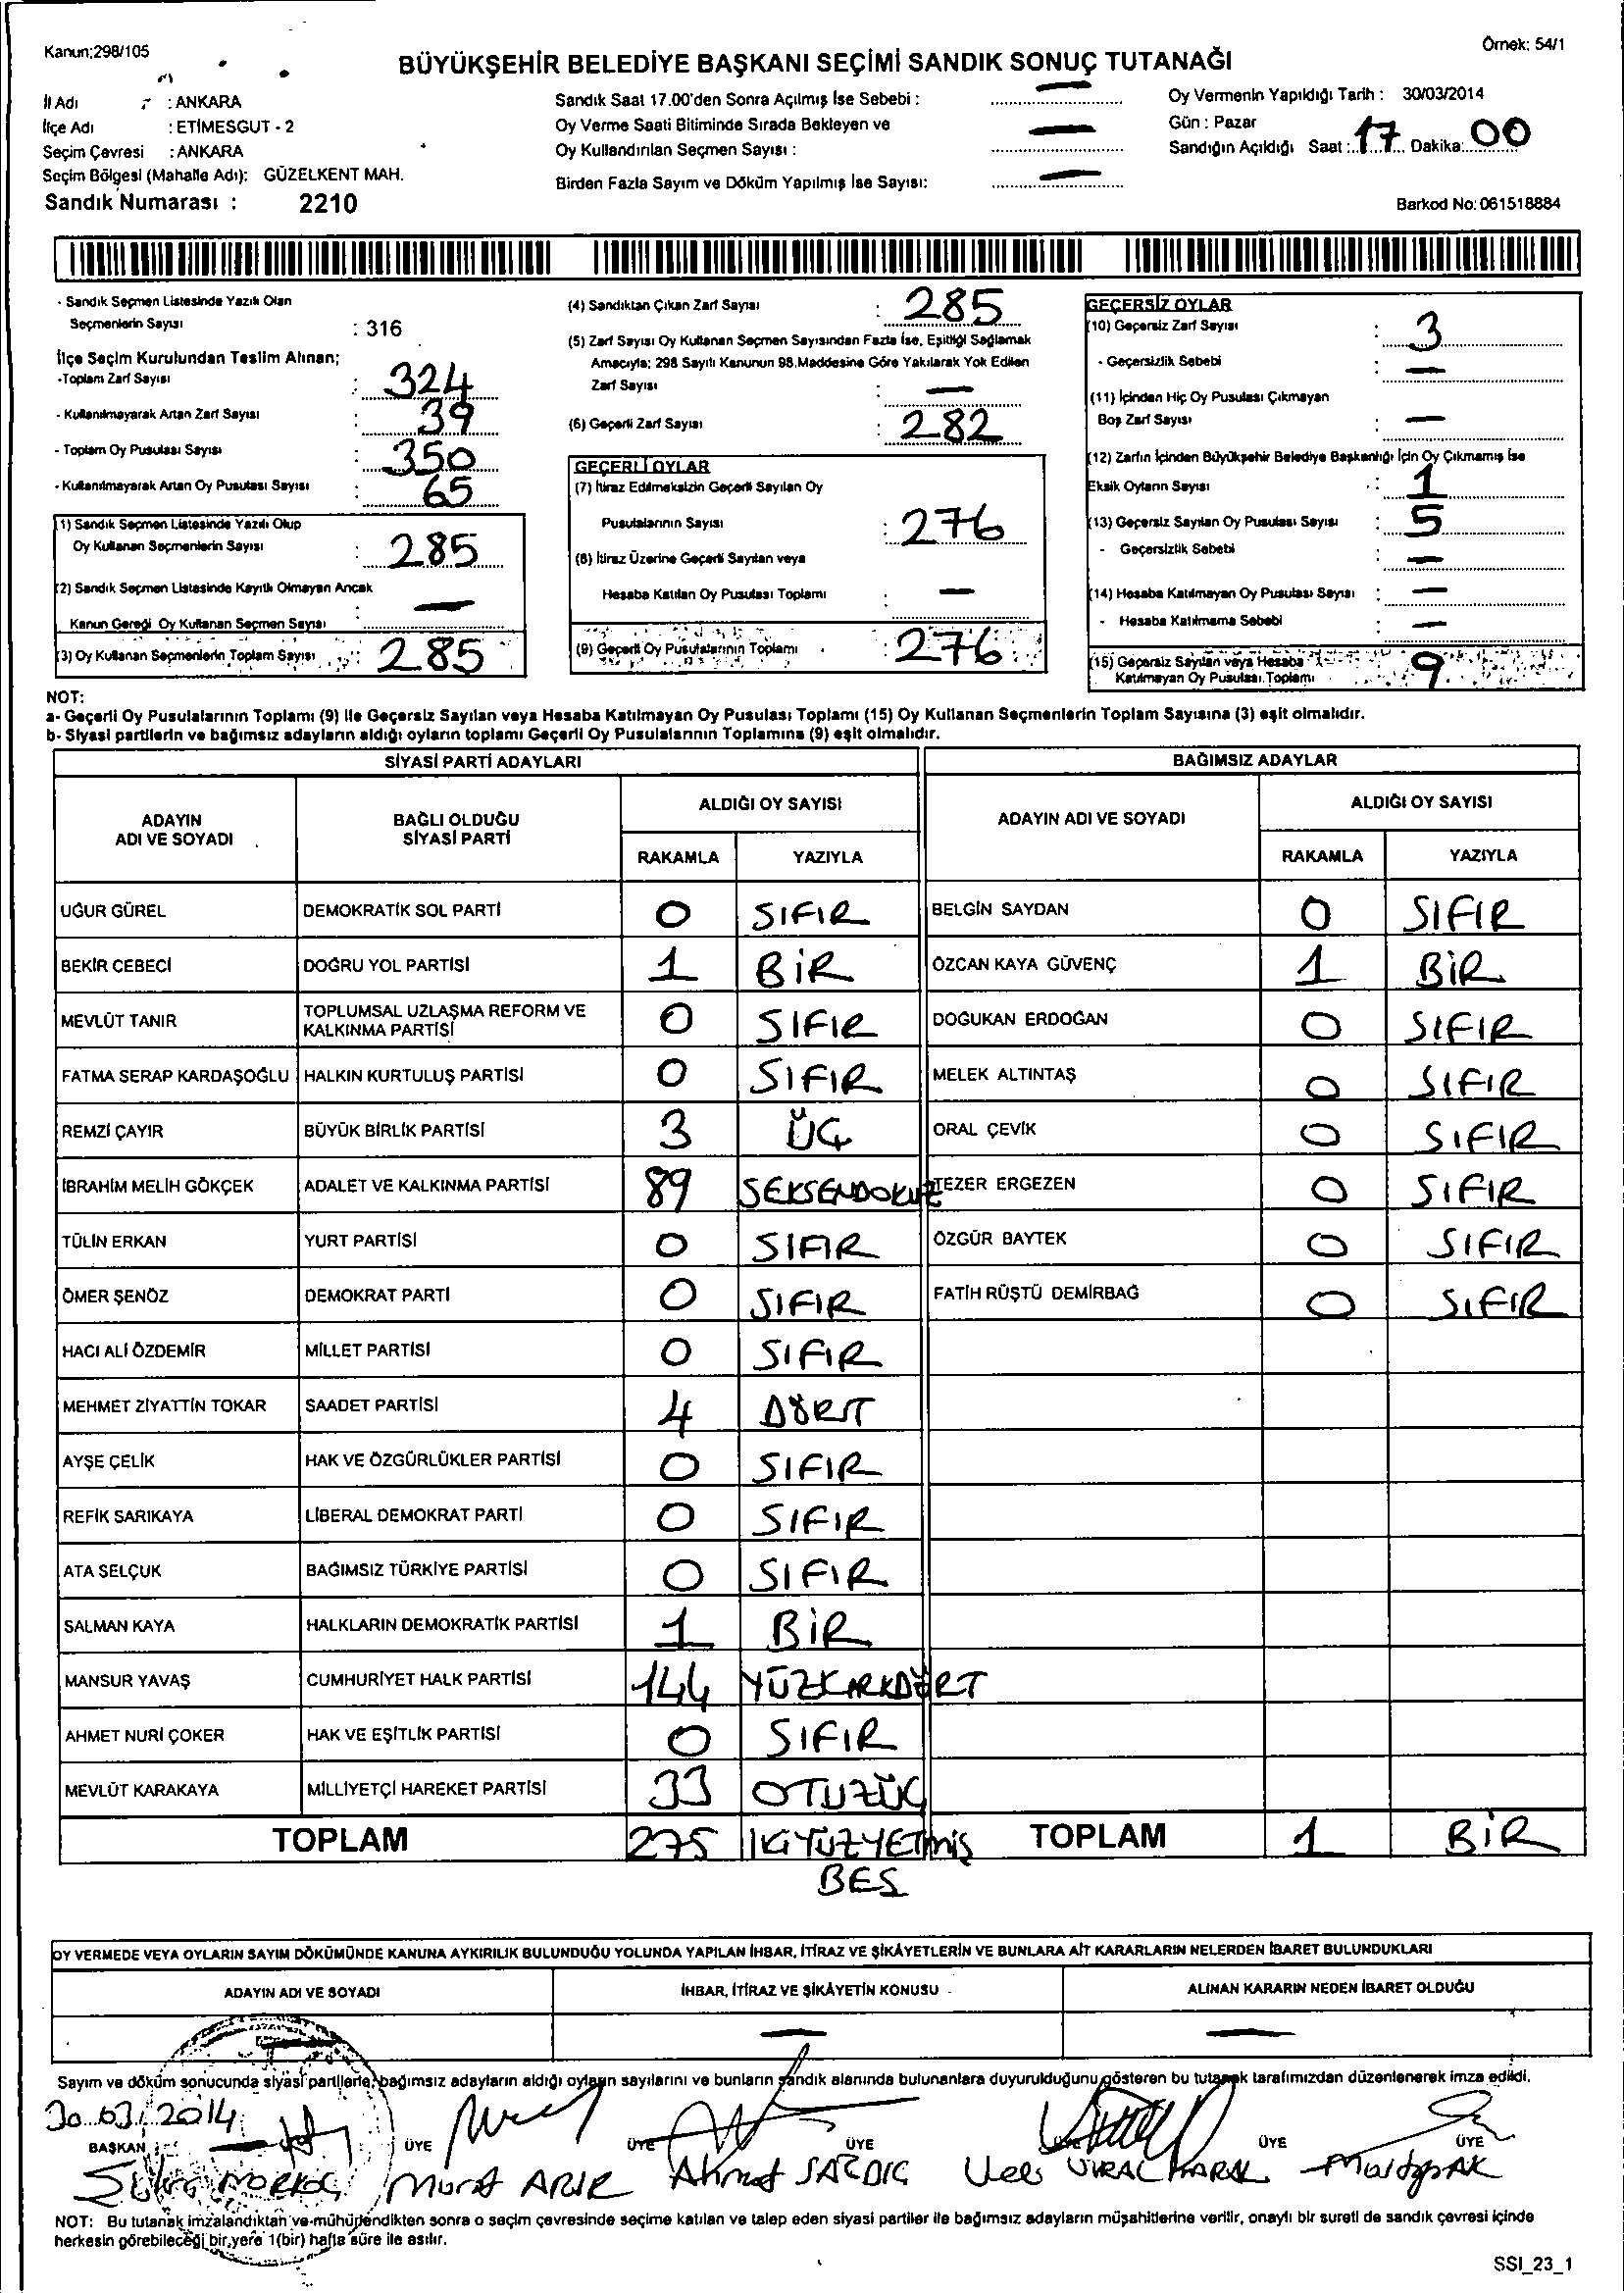 Kanun;298/105
Örnek: 54/1
BÜYÜKŞEHİR BELEDİYE BAŞKANI SEÇİMİ SANDIK SONUÇ TUTANAĞI
İl Adı : ANKARA
İlçe Adı : ETİMESGUT - 2
Seçim Çevresi : ANKARA
Seçim Bölgesi (Mahalle Adı): GÜZELKENT MAH.
Sandık Numarası : 2210
Sandık Saat 17.00'den Sonra Açılmış İse Sebebi : —
Oy Verme Saati Bitiminde Sırada Bekleyen ve
Oy Kullandırılan Seçmen Sayısı : —
Birden Fazla Sayım ve Döküm Yapılmış İse Sayısı: —
Oy Vermenin Yapıldığı Tarih : 30/03/2014
Gün : Pazar
Sandığın Açıldığı Saat : 17 Dakika: 00
Barkod No: 061518884
- Sandık Seçmen Listesinde Yazılı Olan
Seçmenlerin Sayısı : 316
İlçe Seçim Kurulundan Teslim Alınan;
-Toplam Zarf Sayısı : 324
- Kullanılmayarak Artan Zarf Sayısı : 39
- Toplam Oy Pusulası Sayısı : 350
- Kullanılmayarak Artan Oy Pusulası Sayısı : 65
(1) Sandık Seçmen Listesinde Yazılı Olup
Oy Kullanan Seçmenlerin Sayısı : 285
(2) Sandık Seçmen Listesinde Kayıtlı Olmayan Ancak
Kanun Gereği Oy Kullanan Seçmen Sayısı : —
(3) Oy Kullanan Seçmenlerin Toplam Sayısı : 285
(4) Sandıktan Çıkan Zarf Sayısı : 285
(5) Zarf Sayısı Oy Kullanan Seçmen Sayısından Fazla İse, Eşitliği Sağlamak
Amacıyla; 298 Sayılı Kanunun 98.Maddesine Göre Yakılarak Yok Edilen
Zarf Sayısı : —
(6) Geçerli Zarf Sayısı : 282
GEÇERLİ OYLAR
(7) İtiraz Edilmeksizin Geçerli Sayılan Oy
Pusulalarının Sayısı : 276
(8) İtiraz Üzerine Geçerli Sayılan veya
Hesaba Katılan Oy Pusulası Toplamı : —
(9) Geçerli Oy Pusulalarının Toplamı : 276
GEÇERSİZ OYLAR
(10) Geçersiz Zarf Sayısı : 3
- Geçersizlik Sebebi : —
(11) İçinden Hiç Oy Pusulası Çıkmayan
Boş Zarf Sayısı : —
(12) Zarfın İçinden Büyükşehir Belediye Başkanlığı İçin Oy Çıkmamış İse
Eksik Oyların Sayısı : 1
(13) Geçersiz Sayılan Oy Pusulası Sayısı : 5
- Geçersizlik Sebebi : —
(14) Hesaba Katılmayan Oy Pusulası Sayısı : —
- Hesaba Katılmama Sebebi : —
(15) Geçersiz Sayılan veya Hesaba
Katılmayan Oy Pusulası Toplamı : 9
NOT:
a- Geçerli Oy Pusulalarının Toplamı (9) ile Geçersiz Sayılan veya Hesaba Katılmayan Oy Pusulası Toplamı (15) Oy Kullanan Seçmenlerin Toplam Sayısına (3) eşit olmalıdır.
b- Siyasi partilerin ve bağımsız adayların aldığı oyların toplamı Geçerli Oy Pusulalarının Toplamına (9) eşit olmalıdır.
SİYASİ PARTİ ADAYLARI BAĞIMSIZ ADAYLAR
ADAYIN ADI VE SOYADI BAĞLI OLDUĞU SİYASİ PARTİ ALDIĞI OY SAYISI ADAYIN ADI VE SOYADI ALDIĞI OY SAYISI
RAKAMLA YAZIYLA RAKAMLA YAZIYLA
UĞUR GÜREL DEMOKRATİK SOL PARTİ 0 SIFIR BELGİN SAYDAN 0 SIFIR
BEKİR CEBECİ DOĞRU YOL PARTİSİ 1 BİR ÖZCAN KAYA GÜVENÇ 1 BİR
MEVLÜT TANIR TOPLUMSAL UZLAŞMA REFORM VE KALKINMA PARTİSİ 0 SIFIR DOĞUKAN ERDOĞAN 0 SIFIR
FATMA SERAP KARDAŞOĞLU HALKIN KURTULUŞ PARTİSİ 0 SIFIR MELEK ALTINTAŞ 0 SIFIR
REMZİ ÇAYIR BÜYÜK BİRLİK PARTİSİ 3 ÜÇ ORAL ÇEVİK 0 SIFIR
İBRAHİM MELİH GÖKÇEK ADALET VE KALKINMA PARTİSİ 89 SEKSENDOKUZ TEZER ERGEZEN 0 SIFIR
TÜLİN ERKAN YURT PARTİSİ 0 SIFIR ÖZGÜR BAYTEK 0 SIFIR
ÖMER ŞENÖZ DEMOKRAT PARTİ 0 SIFIR FATİH RÜŞTÜ DEMİRBAĞ 0 SIFIR
HACI ALİ ÖZDEMİR MİLLET PARTİSİ 0 SIFIR
MEHMET ZİYATTİN TOKAR SAADET PARTİSİ 4 DÖRT
AYŞE ÇELİK HAK VE ÖZGÜRLÜKLER PARTİSİ 0 SIFIR
REFİK SARIKAYA LİBERAL DEMOKRAT PARTİ 0 SIFIR
ATA SELÇUK BAĞIMSIZ TÜRKİYE PARTİSİ 0 SIFIR
SALMAN KAYA HALKLARIN DEMOKRATİK PARTİSİ 1 BİR
MANSUR YAVAŞ CUMHURİYET HALK PARTİSİ 144 YÜZKIRKDÖRT
AHMET NURİ ÇOKER HAK VE EŞİTLİK PARTİSİ 0 SIFIR
MEVLÜT KARAKAYA MİLLİYETÇİ HAREKET PARTİSİ 33 OTUZÜÇ
TOPLAM 275 İKİYÜZYETMİŞ BEŞ TOPLAM 1 BİR
OY VERMEDE VEYA OYLARIN SAYIM DÖKÜMÜNDE KANUNA AYKIRILIK BULUNDUĞU YOLUNDA YAPILAN İHBAR, İTİRAZ VE ŞİKÂYETLERİN VE BUNLARA AİT KARARLARIN NELERDEN İBARET BULUNDUKLARI
ADAYIN ADI VE SOYADI İHBAR, İTİRAZ VE ŞİKÂYETİN KONUSU ALINAN KARARIN NEDEN İBARET OLDUĞU
— — —
Sayım ve döküm sonucunda siyasi partilerle, bağımsız adayların aldığı oyların sayılarını ve bunların sandık alanında bulunanlara duyurulduğunu gösteren bu tutanak tarafımızdan düzenlenerek imza edildi.
30.03.2014
BAŞKAN ÜYE ÜYE ÜYE ÜYE ÜYE ÜYE
Murat Ahmet Veli
NOT: Bu tutanak imzalandıktan ve mühürlendikten sonra o seçim çevresinde seçime katılan ve talep eden siyasi partiler ile bağımsız adayların müşahitlerine verilir, onaylı bir sureti de sandık çevresi içinde
herkesin görebileceği bir yere 1(bir) hafta süre ile asılır.
SSI_23_1